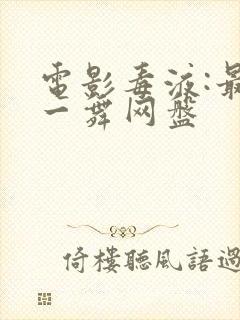 電影毒液:最
一舞网盘
倚樓聽風語過